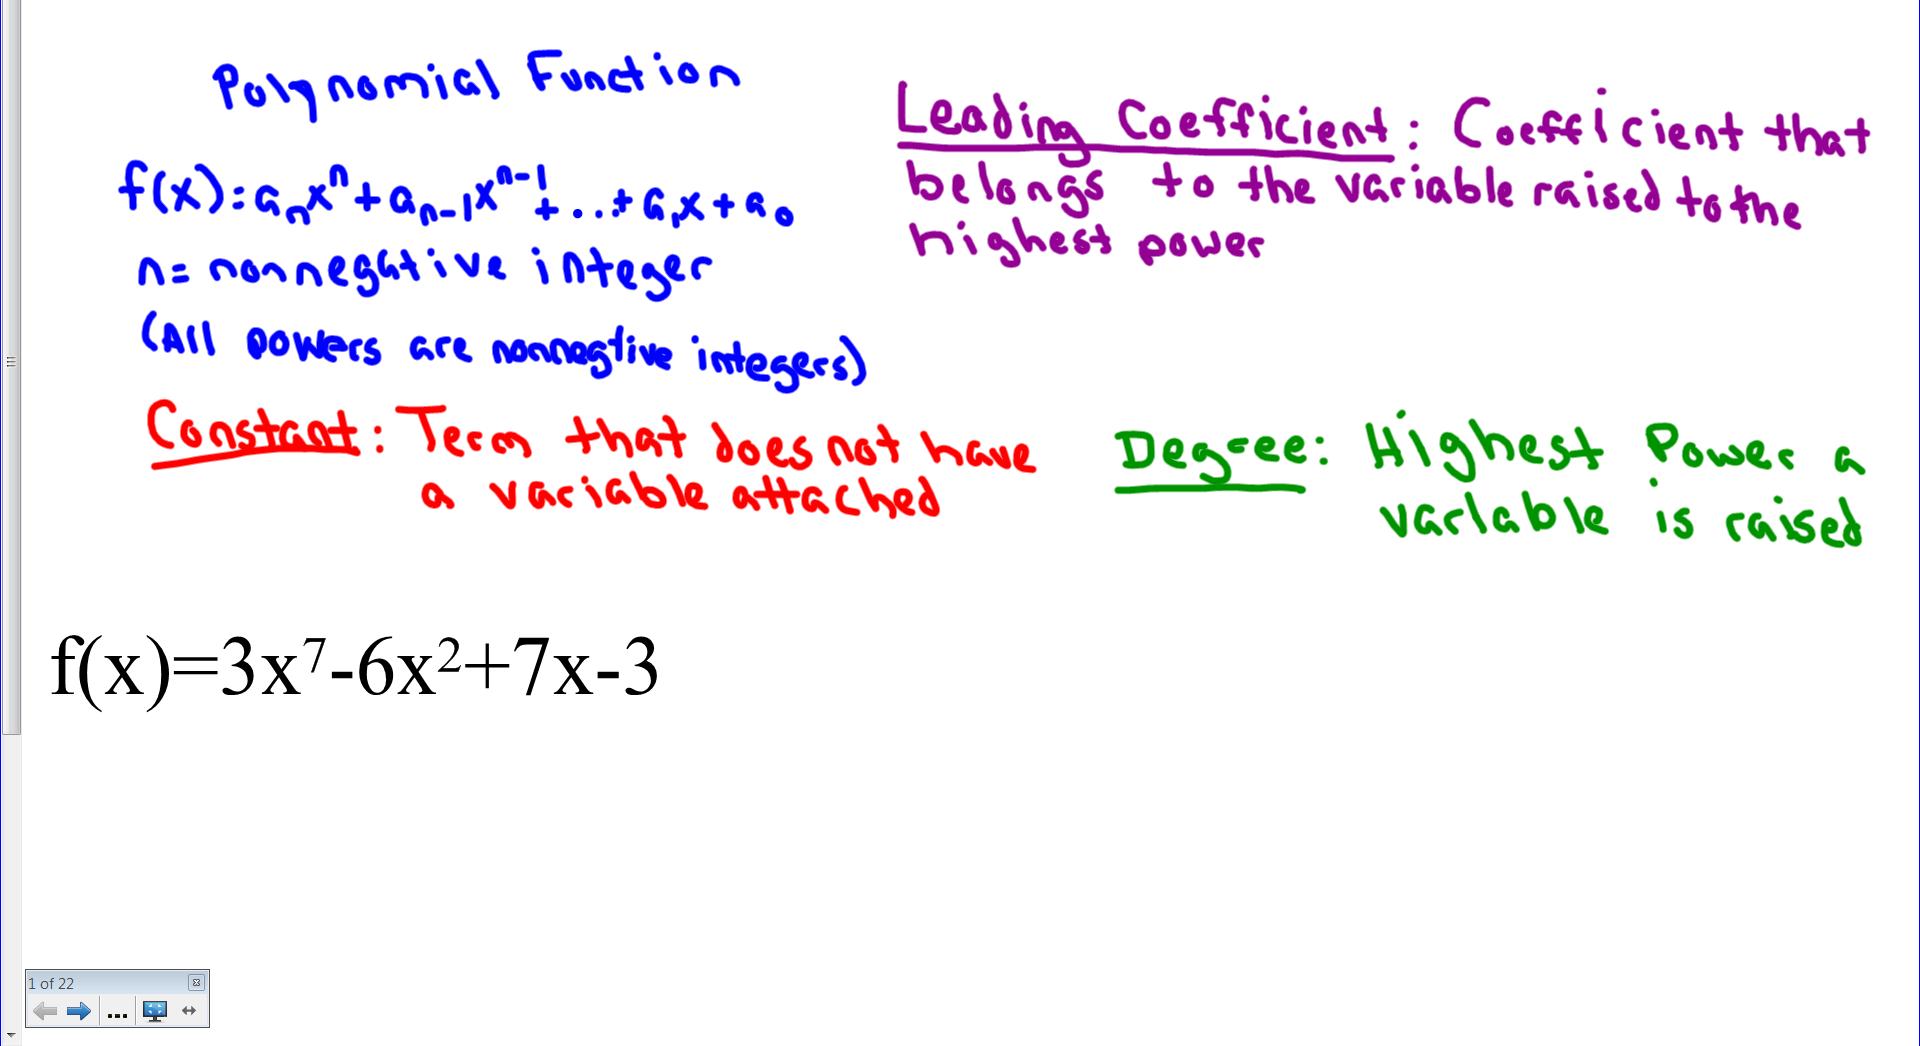 Polynomial Function
f(x)=aₙxⁿ+aₙ₋₁xⁿ⁻¹+...+a₁x+a₀
n= nonnegative integer
(All powers are nonnegtive integers)
Leading Coefficient: Coefficient that
belongs to the variable raised to the
highest power
Constant: Term that does not have
a variable attached
Degree: Highest Power a
variable is raised
f(x)=3x⁷-6x²+7x-3
1 of 22